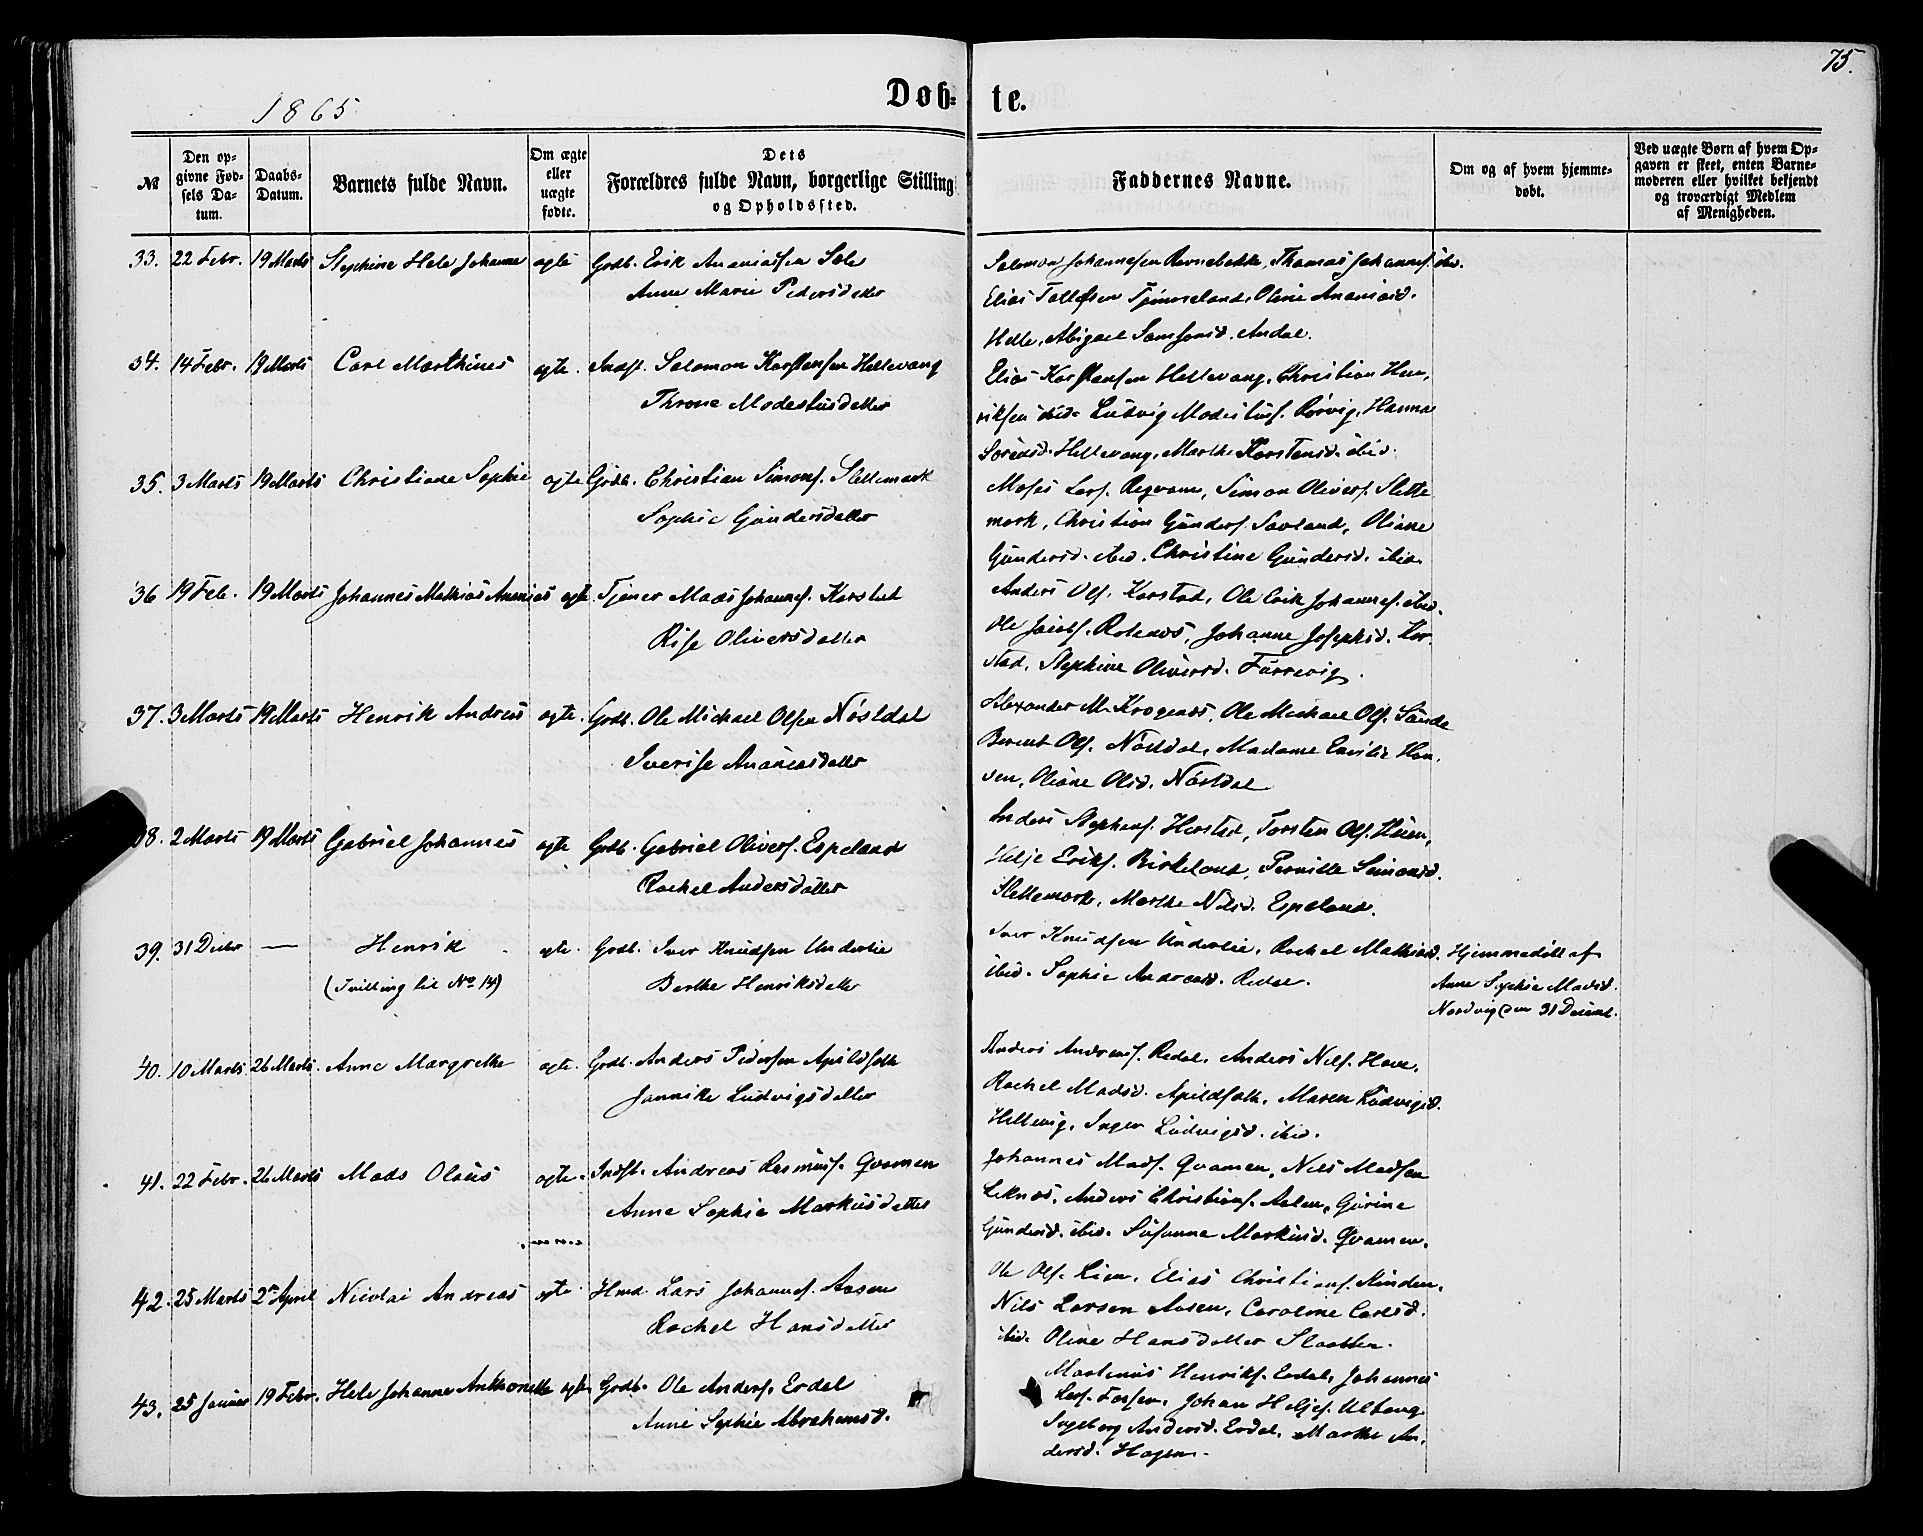 75.
1865
Døb=
te.
№
Den op-
givne Fød-
sels Da-
tum.
Daabs-
Datum.
Barnets fulde Navn.
Om ægte
eller
uægte
fødte.
Dets
Forældres fulde Navn, borgerlige Stilling
og Opholdssted.
Faddernes Navne.
Om og af hvem hjemme-
døbt.
Ved uægte Børn af hvem Op-
gaven er skeet, enten Barne-
moderen eller hvilket bekjendt
og troværdigt Medlem
af Menigheden.
33. 22 Febr. 19 Marts Stephine Hele Johanne ægte Grdb. Erik Ananiassen Sele
Anne Marie Pedersdatter
Salomon Johannesen Ravnebekke, Thomas Johannes. ibid.
Elias Tollefsen Tjønneland, Oline Ananiasd.
Helle, Abigael Samsonsd. Andal.
34. 14 Febr. 19 Marts Carl Marthines ægte. Indst. Salomon Karstensen Hellevang
Throne Modestusdatter
Elias Karstensen Hellevang, Christian Hen-
riksen ibid. Ludvig Modestus. Rørvig, Hanna
Sørensd. Hellevang, Marthe Karstensd. ibid.
35. 3 Marts 19 Marts Christiane Sophie ægte Grdb. Christian Simons. Slettemark
Sophie Gundersdatter
Moses Lars. Regvam, Simon Olivers. Slette
mark, Christian Gunders. Savland, Oliane
Gundersd. ibid. Christine Gundersd. ibid.
36 19 Feb. 19 Marts Johannes Mathias Ananias ægte. Tjener Mads Johannes. Karstad
Rise Oliversdatter
Anders Ols. Karstad, Ole Erik Johannes. ibid.
Ole Jacobs. Rotenes, Johanne Josephsd. Kar-
stad, Stephine Oliversd. Furrevig.
37. 3 Marts 19 Marts Henrik Andreas ægte. Grdb. Ole Michael Olsen Nøstdal
Sverise Ananiasdatter
Alexander M. Krogenes, Ole Michael Ols. Sande
Berent Ols. Nøstdal, Madame Emilie Han-
sen, Oliane Olsd. Nøstdal
38. 2 Marts 19 Marts Gabriel Johannes ægte Grdb. Gabriel Olivers. Espeland
Rachel Andersdatter
Anders Stephens. Herstad, Torsten Ols. Huen,
Helje Eriks. Birkeland, Pernille Simonsd.
Slettemark, Marthe Nilsd. Espeland.
39. 31 Decbr — Henrik ægte. Grdb. Iver Knudsen Underlie
(Tvilling til No 14) Berthe Henriksdatter
Iver Knudsen Underlie, Rachel Mathiasd.
ibid. Sophie Andreasd. Redal.
Hjemmedøbt af
Anne Sophie Madsd.
Nordvig den 31 Decemb.
40. 10 Marts 26 Marts. Anne Margrethe ægte. Grdb. Anders Pedersen Apildfolk
Jannike Ludvigsdatter
Anders Andreas. Redal, Anders Nils. Hove,
Rachel Madsd. Apildfolk, Maren Ludvigsd.
Hellevig, Inger Ludvigsd. ibid.
41. 22 Febr. 26 Marts Mads Olaus ægte. Indst. Andreas Rasmus. Qvamen
Anne Sophie Markusdatter
Johannes Mads. Qvamen, Nils Madsen
Leknes, Anders Christians. Aalen, Gurine
Gundersd. ibid. Susanne Markusd. Qvamen.
42. 25 Marts 2den April Nicolai Andreas ægte Hmd. Lars Johannes. Aasen
Rachel Hansdatter
Ole Ols. Lien, Elias Christians. Rinden,
Nils Larsen Aasen, Caroline Carlsd.
ibid. Oline Hansdatter Slaatten.
43. 25 Januar 19 Febr. Hele Johanne Anthonette ægte Grdb. Ole Anders. Erdal
Anne Sophie Abrahamsd.
Martinus Henriks. Erdal, Johannes
Lars. Fossen, Johan Heljes. Ulltang
Ingeborg Andersd. Erdal, Marthe An-
dersd. Hagen.